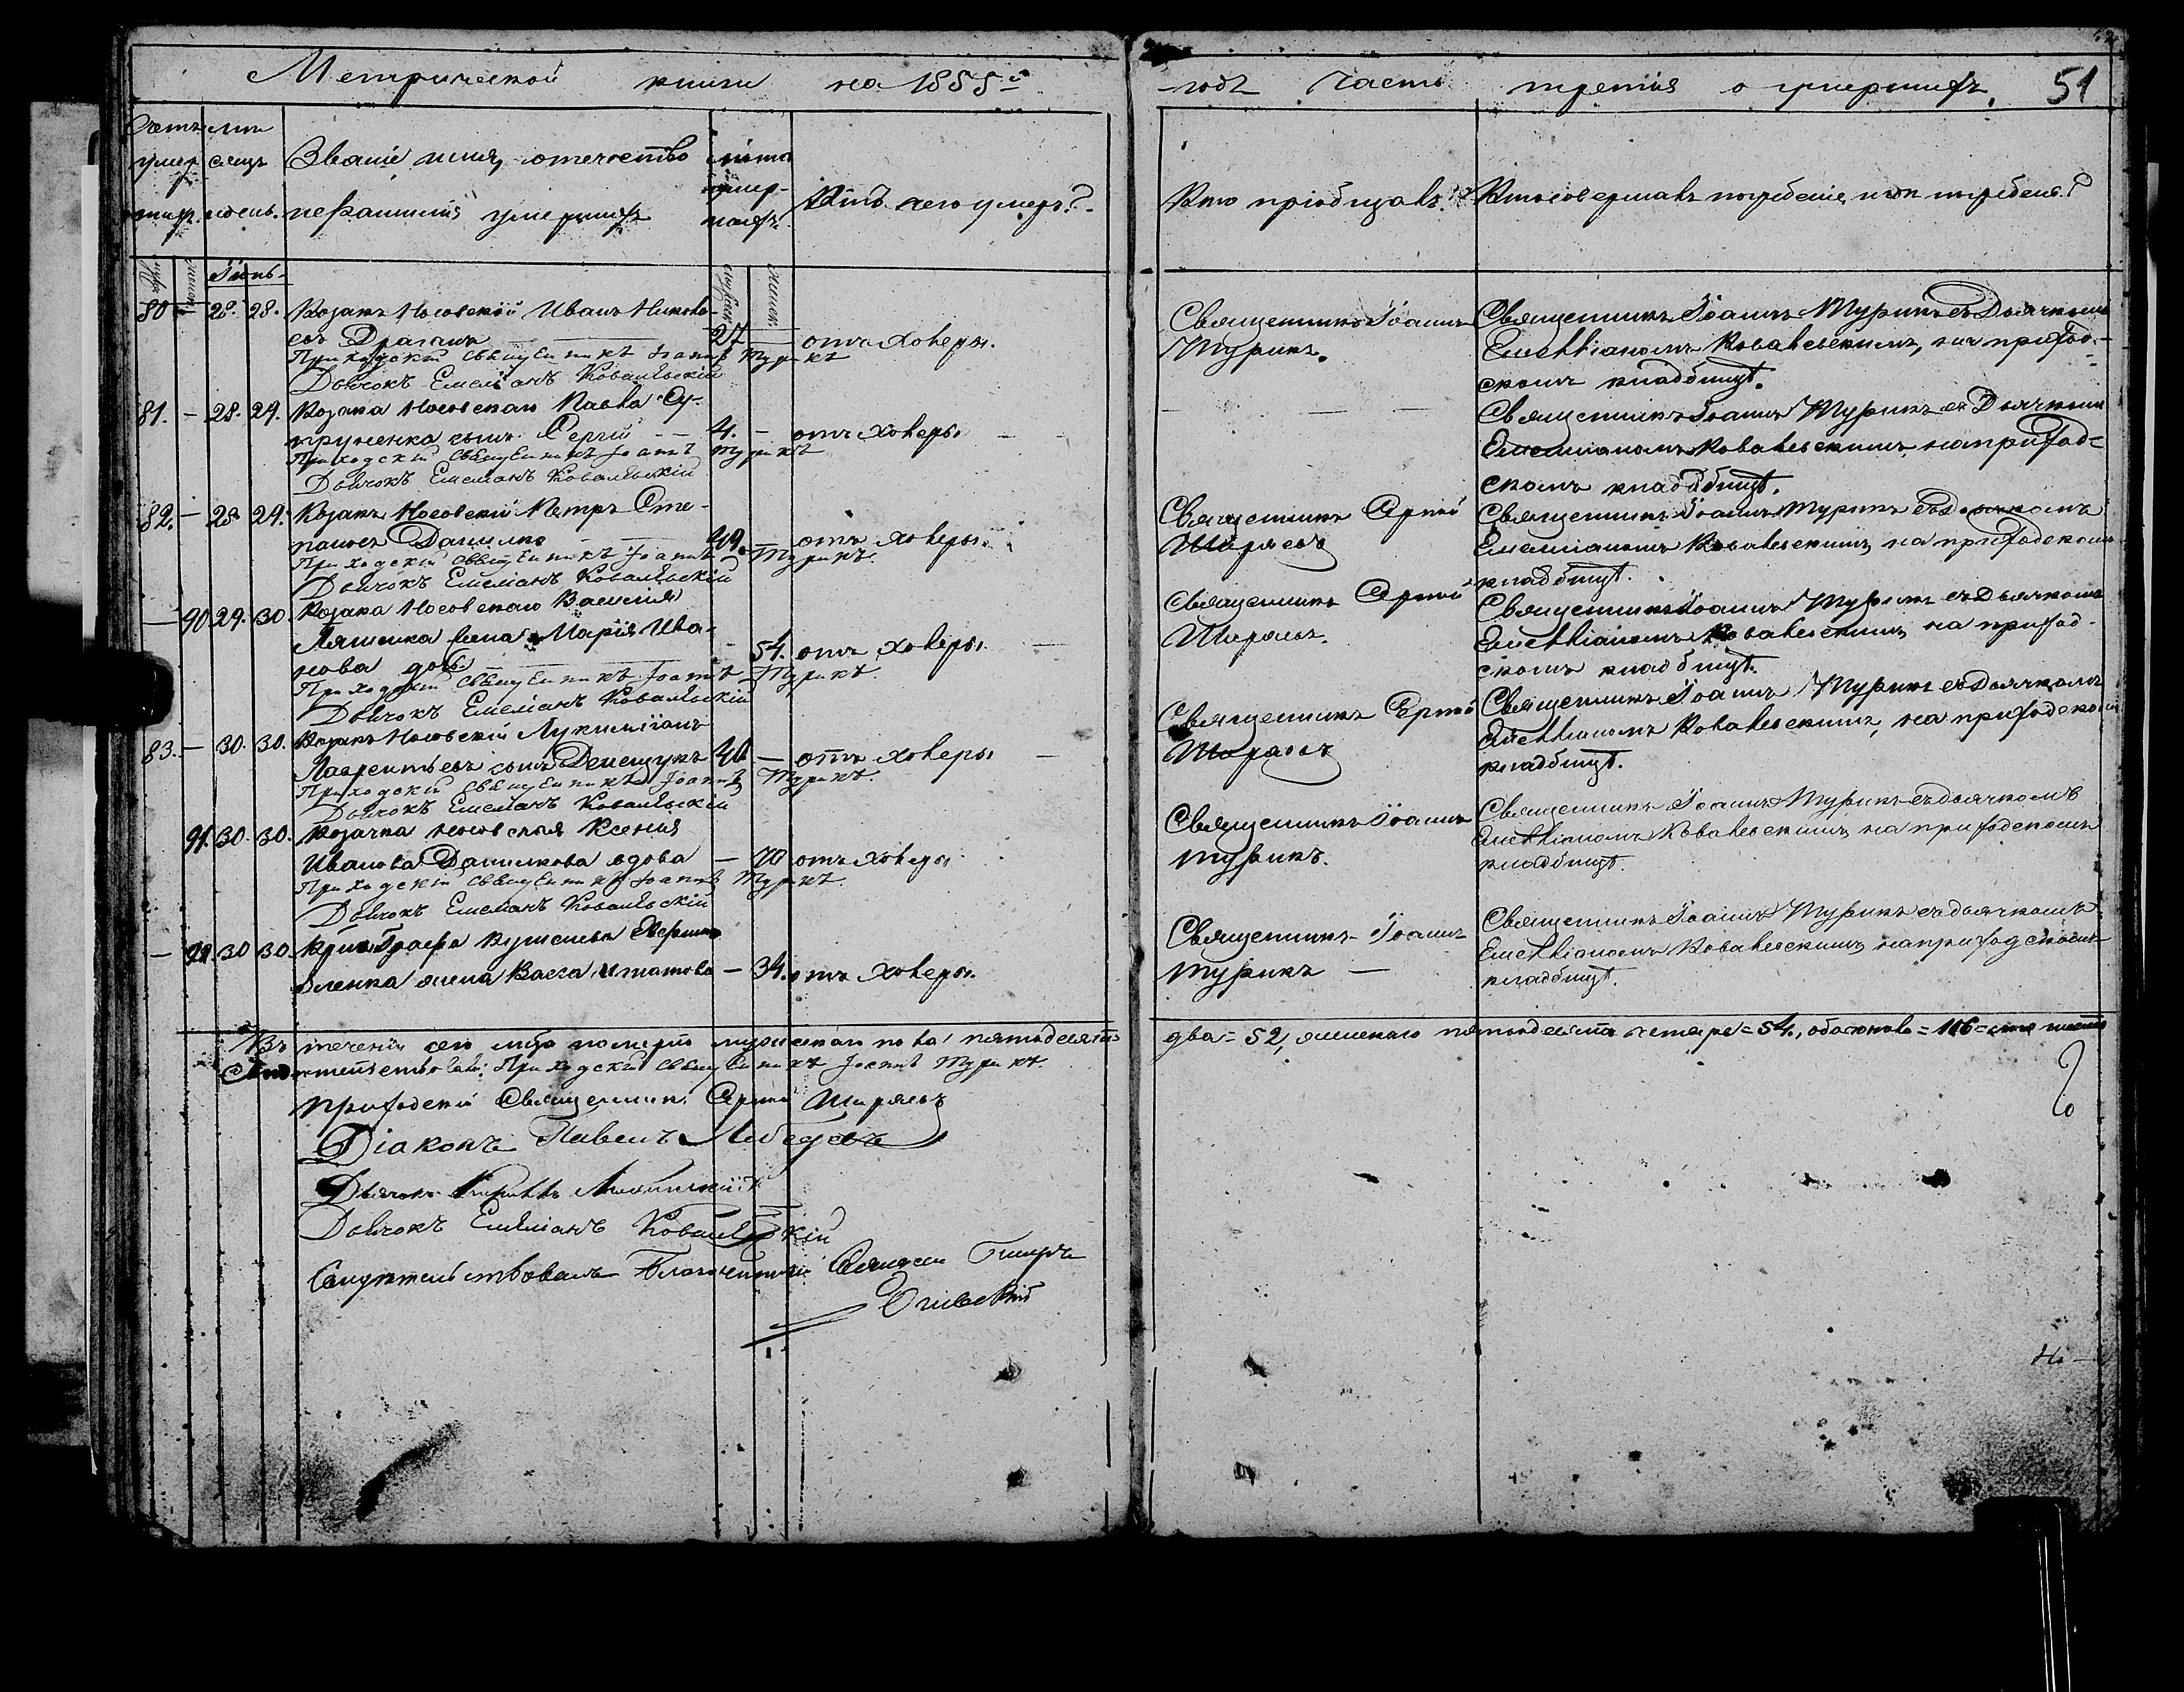 Метрической книги на 1855й
годъ Часть третія о умершихъ. 51
Счетъ умершихъ.
Мѣсяцъ и день.
Званіе, имя, отечество и фамилія умершихъ
Лѣта умершихъ.
Отъ чего умеръ?
Кто пріобщалъ?
Кто совершалъ погребеніе и гдѣ погребенъ?
Іюнь
80 – 28. 28. Козакъ Носовский Иванъ
евъ Драганъ 27 – отъ холеры.
Приходскій Священникъ Іоаннъ Турикъ
Дьячокъ Емеліанъ Ковалевскій
Священникъ Іоаннъ
Турикъ.
Священникъ Іоаннъ Турикъ съ Дьячкомъ
Емеліаномъ Ковалевскимъ, на приход-
скомъ кладбищѣ.
81. – 28. 29. Козака Носовскаго Павла Су-
пруненка сынъ Сергій 4. – отъ холеры
Приходскій Священникъ Іоаннъ Турикъ
Дьячокъ Емеліанъ Ковалевскій
Священникъ Іоаннъ Турикъ съ Дьячкомъ
Емеліаномъ Ковалевскимъ на приход-
скомъ кладбищѣ.
82. – 28 29. Козакъ Носовскій Петръ Сте-
пановъ Данилко 49. – отъ холеры.
Приходскій Священникъ Іоаннъ Турикъ.
Дьячокъ Емеліанъ Ковалевскій
Священникъ Сергій
Ширяевъ
Священникъ Іоаннъ Турикъ съ Дьячкомъ
Емеліаномъ Ковалевскимъ на приходскомъ
кладбищѣ.
– 90 29. 30. Козака Носовскаго Василія
Ляшенка жена Марія Ива-
нова дочь – 54. отъ холеры.
Приходскій Священникъ Іоаннъ Турикъ.
Дьячокъ Емеліанъ Ковалевскій
Священникъ Сергій
Ширяевъ.
Священникъ Іоаннъ Турикъ съ Дьячкомъ
Емеліаномъ Ковалевскимъ на приход-
скомъ кладбищѣ.
83. – 30. 30. Козакъ Носовскій Лукиліанъ
Лаврентьевъ сынъ 40 – отъ холеры
Приходскій Священникъ Іоаннъ Турикъ.
Дьячокъ Емеліанъ Ковалевскій
Священникъ Сергій
Ширяевъ
Священникъ Іоаннъ Турикъ съ Дьячкомъ
Емеліаномъ Ковалевскимъ, на приходскомъ
кладбищѣ.
91. 30. 30. Козачка Носовская Ксенія
Иванова Данилкова вдова – 70 отъ холеры
Приходскій Священникъ Іоаннъ Турикъ.
Дьячокъ Емеліанъ Ковалевскій
Священникъ Іоаннъ
Турикъ.
Священникъ Іоаннъ Турикъ съ дьячкомъ
Емеліаномъ Ковалевскимъ на приходскомъ
кладбищѣ.
– 30 30. Графа Кушелева
жена – 34. отъ холеры.
Священникъ Іоаннъ
Турикъ –
Священникъ Іоаннъ Турикъ съ дьячкомъ
Емеліаномъ Ковалевскимъ на приходскомъ
кладбищѣ.
Въ теченіи сего мѣсяца померло мужескаго пола пятьдесятъ
два = 52, женскаго пятьдесятъ четыре = 54., обоего пола = 106 = сто шесть
Приходскій Священникъ Іоаннъ Турикъ.
Приходскій Священникъ Сергій Ширяевъ
Діаконъ Павелъ Лебедевъ
Дьячокъ Кириллъ
Дьячокъ Емеліанъ Ковалевскій
Свидѣтельствовалъ Благочинный Священникъ